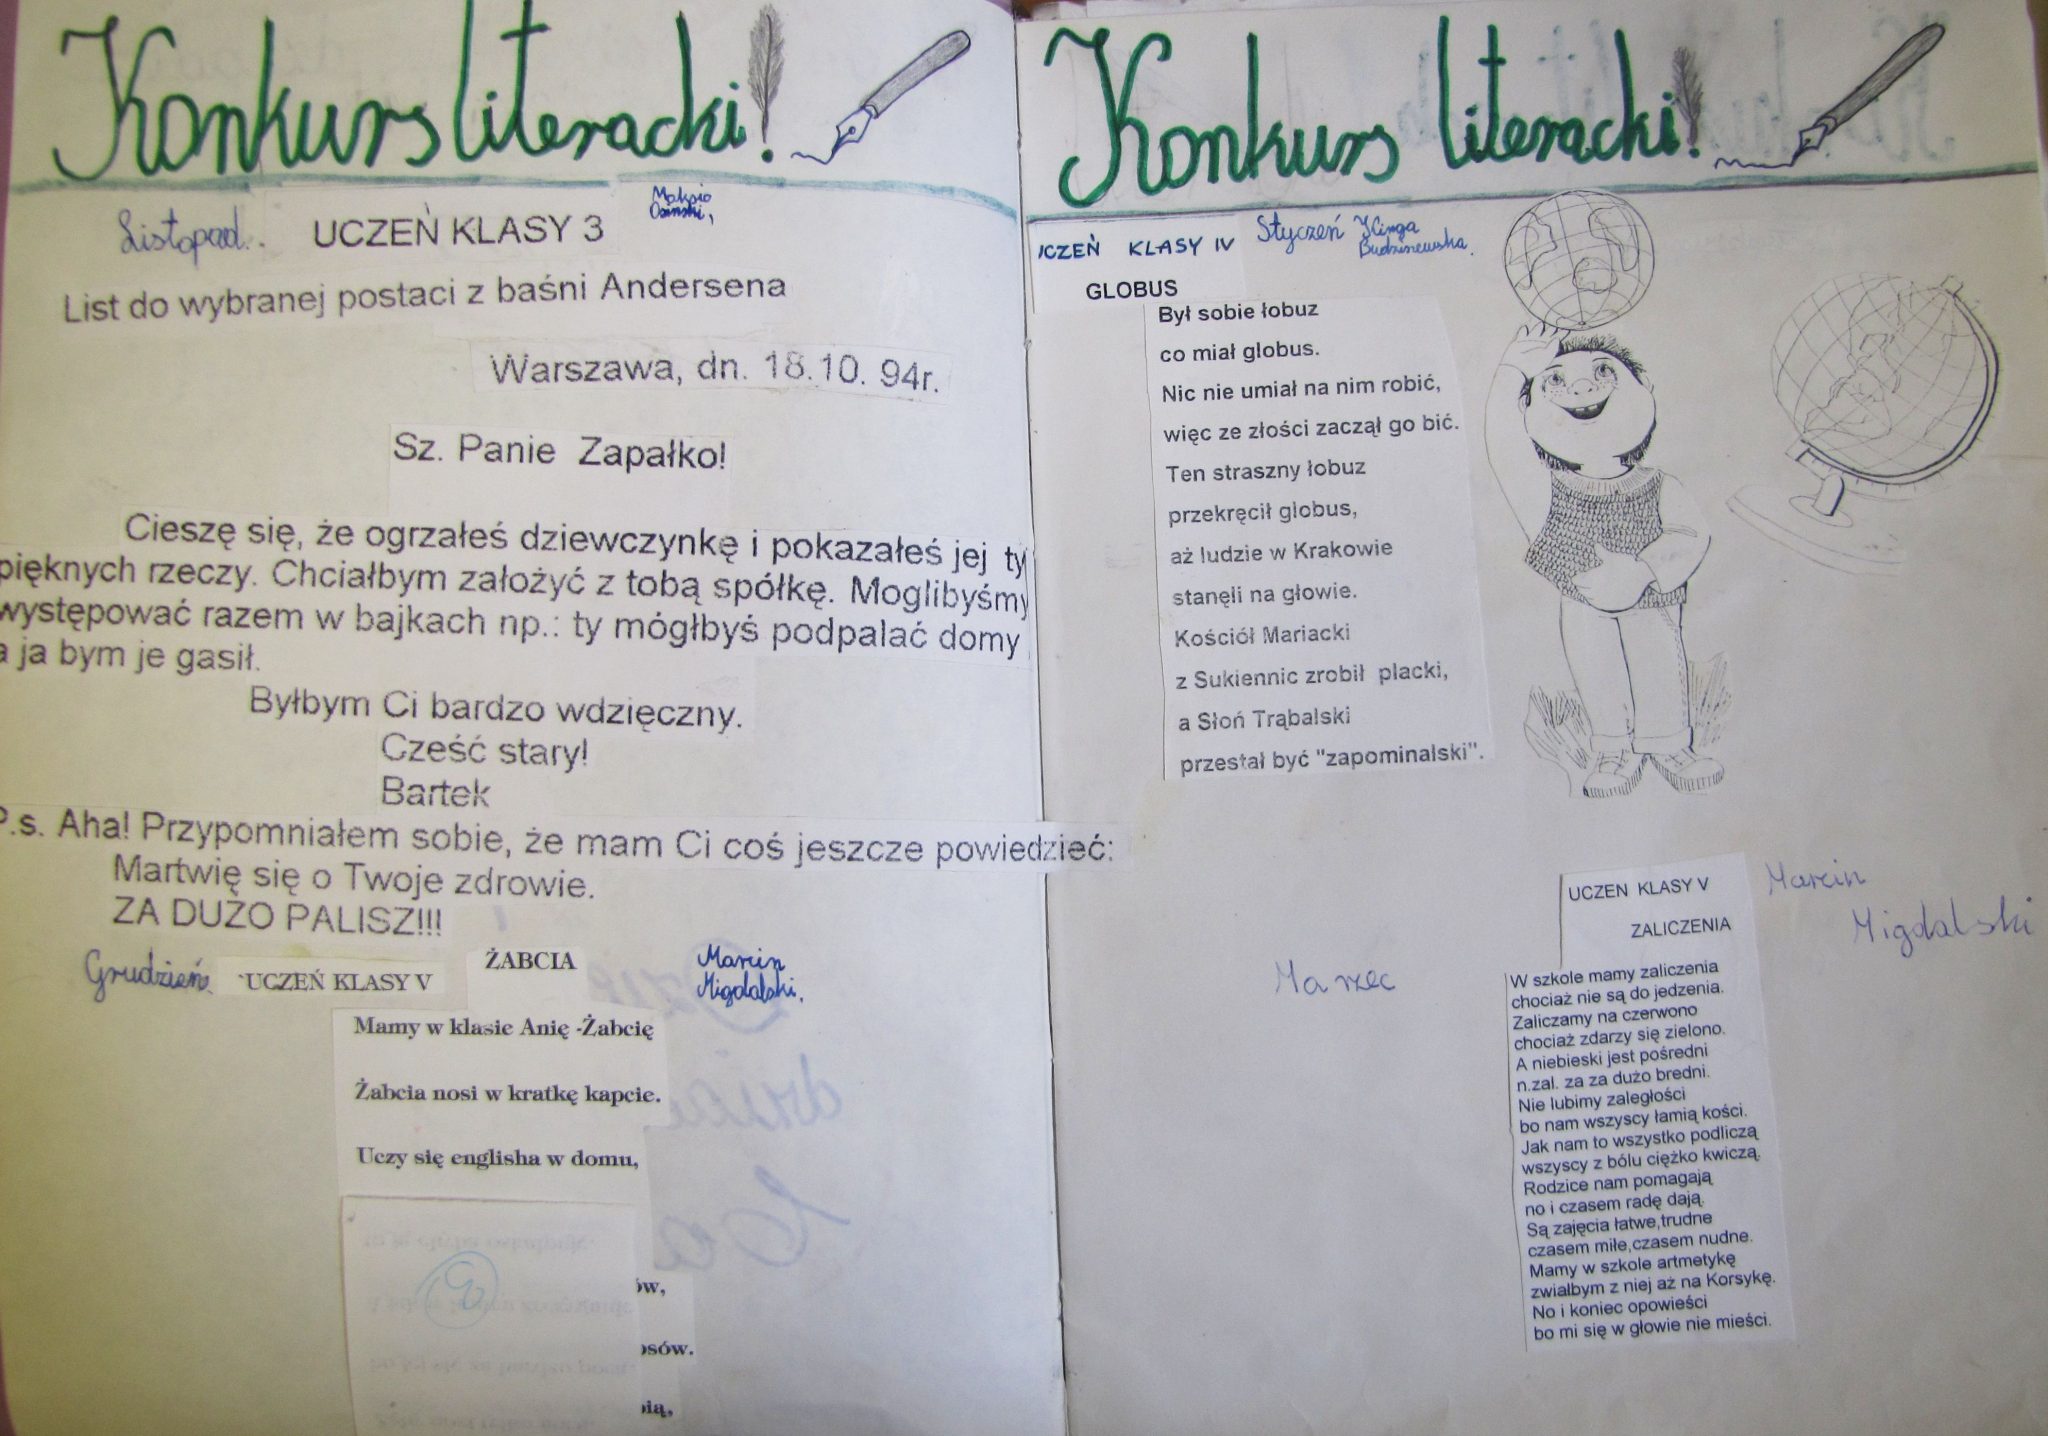 Konkurs literacki!
Listopad. UCZEŃ KLASY 3
Maksio
Osinski,
List do wybranej postaci z baśni Andersena
Warszawa, dn. 18.10. 94r.
Sz. Panie Zapałko!
Cieszę się, że ogrzałeś dziewczynkę i pokazałeś jej ty
pięknych rzeczy. Chciałbym założyć z tobą spółkę. Moglibyśmy
występować razem w bajkach np.: ty mógłbyś podpalać domy
a ja bym je gasił.
Byłbym Ci bardzo wdzięczny.
Cześć stary!
Bartek
P.s. Aha! Przypomniałem sobie, że mam Ci coś jeszcze powiedzieć:
Martwię się o Twoje zdrowie.
ZA DUŻO PALISZ!!!
Grudzień. UCZEŃ KLASY V
ŻABCIA
Marcin
Migdalski.
Mamy w klasie Anię -Żabcię
Żabcia nosi w kratkę kapcie.
Uczy się englisha w domu,
ów,
osów.
ią,
Konkurs literacki!
UCZEŃ KLASY IV Styczeń Kinga
Budziszewska.
GLOBUS
Był sobie łobuz
co miał globus.
Nic nie umiał na nim robić,
więc ze złości zaczął go bić.
Ten straszny łobuz
przekręcił globus,
aż ludzie w Krakowie
stanęli na głowie.
Kościół Mariacki
z Sukiennic zrobił placki,
a Słoń Trąbalski
przestał być "zapominalski".
Marzec
UCZEN KLASY V
Marcin
Migdalski
ZALICZENIA
W szkole mamy zaliczenia
chociaż nie są do jedzenia.
Zaliczamy na czerwono
chociaż zdarzy się zielono.
A niebieski jest pośredni
n.zal. za za dużo bredni.
Nie lubimy zaległości
bo nam wszyscy łamią kości.
Jak nam to wszystko podliczą
wszyscy z bólu ciężko kwiczą.
Rodzice nam pomagają
no i czasem radę dają.
Są zajęcia łatwe,trudne
czasem miłe,czasem nudne.
Mamy w szkole artmetykę
zwiałbym z niej aż na Korsykę.
No i koniec opowieści
bo mi się w głowie nie mieści.